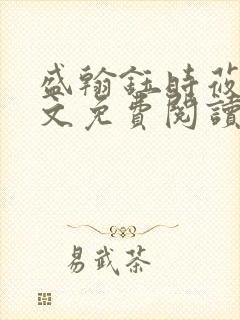 盛翰鈺時莜
文免費閱讀
易武茶